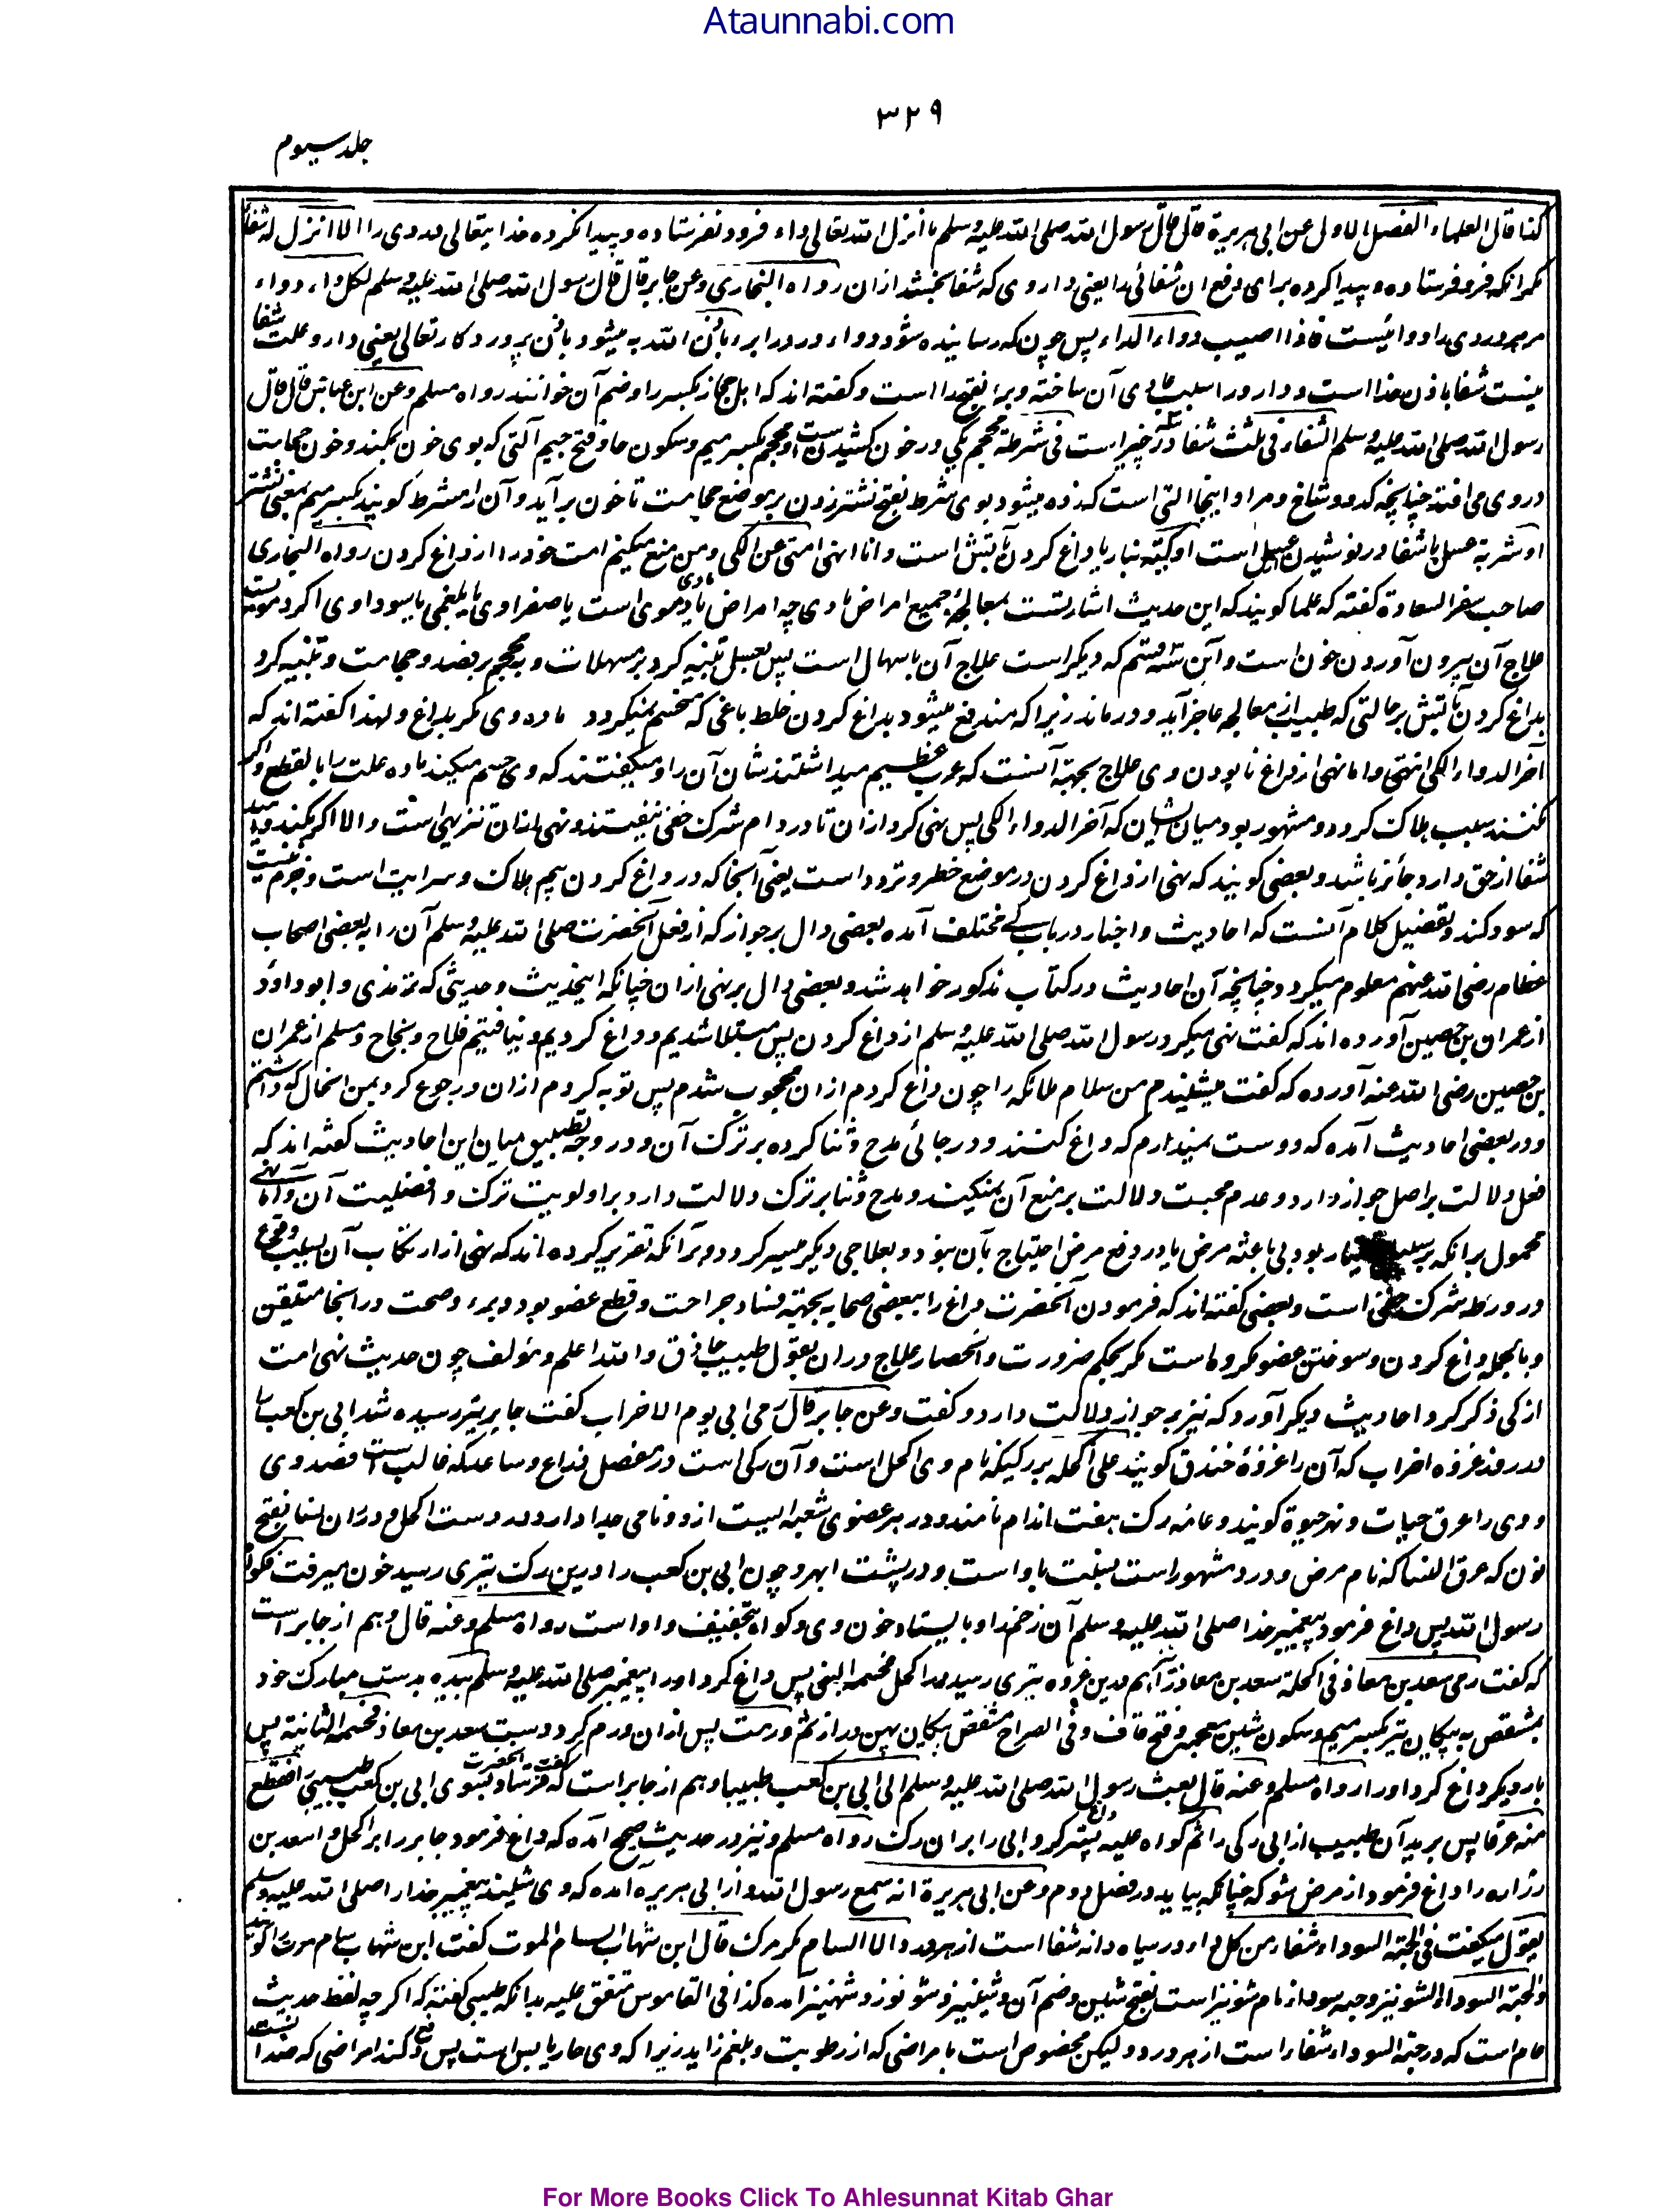 Ataunnabi.com
۳۲۹
جلد سیوم
کذا قال العلماء الفصل الاول عن ابی هریرة قال قال رسول الله صلی الله علیه وسلم ما انزل الله تعالی داء فرود نفرستاده و پیدا نکرده خدایتعالی دردی را الا انزل له شفاء
مگر آنکه فرو فرستاده و پیدا کرده برای دفع ان شفائی را یعنی داروی که شفا بخشد ازان رواه البخاری وعن جابر قال قال رسول الله صلی الله علیه وسلم لکل داء دواء
مر هر دردی را دوائیست فاذا اصیب دواء الداء پس چون که رسانیده شود دواء درد را برء باذن الله به میشود باذن پروردگار تعالی یعنی دارو علت شفا
نیست شفا باذن خدا است و دارو را سبب عادی آن ساخته و برء بفتح را است و گفته اند که اهل حجاز بکسر را و ضم آن خوانند رواه مسلم وعن ابن عباس قال قال
رسول الله صلی الله علیه وسلم الشفاء فی ثلث شفا در سه چیز است فی شرطة محجم یکی در خون کشیدن است و محجم بکسر میم وسکون حا و فتح جیم آلتی که بوی خون بکشند و خون حجامت
در وی می افتد چنانچه کدو و شاخ و مراد اینجا آلتی است که زده میشود بوی شرط بفتح نشتر زدن بر موضع حجامت تا خون بر آید و آن را مشرط گویند بکسر میم بمعنی نشتر
او شربة عسل یا شفا در نوشیدن عسل است او کیة بنار یا داغ کردن بآتش است وانا انهی امتی عن الکی و من منع میکنم امت خود را از داغ کردن رواه البخاری
صاحب سفر السعادة گفته که علما گویند که این حدیث اشارتست بمعالجۀ جمیع امراض مادی چه امراض مادی یا دموی است یا صفراوی یا بلغمی یا سوداوی اگر دمویست
علاج آن بیرون آوردن خون است و آن سه قسم که دیگر است علاج آن باسهال است پس بعسل تنبیه کرد بر مسهلات و به محجم بر فصد و حجامت و تنبیه کرد
بداغ کردن بآتش بر حالتی که طبیب از معالجه عاجز آید و در ماند زیرا که مندفع میشود بداغ کردن خلط باغی که منحسم نمیگردد ماده وی مگر بداغ و لهذا گفته اند که
آخر الدواء الکی انتهی و اما نهی از داغ نابودن وی علاج بجهت آنست که عرب عظیم میداشتند شان آن را و میگفتند که وی حسم میکند ماده علت را بالقطع و اگر
نکنند سبب هلاک گردد و مشهور بود میان ایشان که آخر الدواء الکی پس نهی کرد ازان تا در دام شرک خفی نیفتند و نهی ازان تنزیهی است والا اگر بکنند و امید
شفا از حق دارد جائز باشد و بعضی گویند که نهی از داغ کردن در موضع خطر و تردد است یعنی آنجا که در داغ کردن بیم هلاک و سرایت است و جزم نیست
که سود کند و تفصیل کلام آنست که احادیث و اخبار در باب کی مختلف آمده بعضی دال بر جواز که از فعل آنحضرت صلی الله علیه وسلم آن را به بعضی اصحاب
عظام رضی الله عنهم معلوم میگردد چنانچه آن احادیث در کتاب مذکور خواهد شد و بعضی دال بر نهی ازان چنانکه اینحدیث و حدیثی که ترمذی و ابو داود
از عمران بن حصین آورده اند که گفت نهی میکرد رسول الله صلی الله علیه وسلم از داغ کردن پس مبتلا شدیم و داغ کردیم و نیافتیم فلاح و نجاح و مسلم از عمران
بن حصین رضی الله عنه آورده که گفت میشنیدم من سلام ملائکه را چون داغ کردم ازان محجوب شدم پس توبه کردم ازان و رجوع کرد بمن انحال که داشتم
و در بعضی احادیث آمده که دوست نمیدارم که داغ کنند و در جائی مدح و ثنا کرده بر ترک آن و در وجه تطبیق میان این احادیث گفته اند که
فعل دلالت بر اصل جواز دارد و عدم محبت دلالت بر منع آن نمیکند و مدح و ثنا بر ترک دلالت دارد بر اولویت ترک و افضلیت آن و اما نهی
محمول بر آنکه بر سبیل اختیار بود بی باعثه مرض یا در دفع مرض احتیاج بآن نبود و بعلاجی دیگر میسر گردد و بر آنکه تقریر کرده اند که نهی از ارتکاب آن بسبب وقوع
در ورطه شرک خفی است و بعضی گفته اند که فرمودن آنحضرت داغ را ببعضی صحابه بجهة فساد جراحت و قطع عضو بود و برء و صحت در انجا متیقن
و بالجمله داغ کردن و سوختن عضو مکروه است مگر بحکم ضرورت و انحصار علاج در ان بقول طبیب حاذق والله اعلم و مؤلف چون حدیث نهی امت
از کی ذکر کرد احادیث دیگر آورد که نیز بر جواز دلالت دارد و گفت وعن جابر قال رمی ابی یوم الاحزاب گفت جابر تیر رسیده شد ابی بن کعب را
در روز غزوه احزاب که آن را غزوۀ خندق گویند علی اکحله بر رگیکه نام وی اکحل است و آن رگی است در مفصل ذراع و ساعد که غالب است فصد وی
و وی را عرق حیات و نهر حیوة گویند و عامه رگ هفت اندام نامند و در هر عضوی شعبه ایست از و و نامی جدا دارد در دست اکحل و در ران نسا بفتح
نون که عرق النسا که نام مرض و درد مشهور است بنسبت باو است و در پشت ابهر و چون ابی بن کعب را درین رگ تیری رسید خون میرفت فکواه
رسول الله پس داغ فرمود پیغمبر خدا صلی الله علیه وسلم آن زخم را و بایستاد خون وی و کواه بتخفیف واو است رواه مسلم وعنه قال و هم از جابر است
که گفت رمی سعد بن معاذ فی اکحله سعد بن معاذ را هم درین غزوه تیری رسید در اکحل فحسمه النبی پس داغ کرد او را پیغمبر صلی الله علیه وسلم بیده بدست مبارک خود
بمشقص به پیکان تیر بکسر میم وسکون شین معجمه و فتح قاف و فی الصراح مشقص پیکان پهن و دراز ثم ورمت پس ازان ورم کرد دست سعد بن معاذ فحسمه الثانیة پس
بار دیگر داغ کرد او را رواه مسلم وعنه قال بعث رسول الله صلی الله علیه وسلم الی ابی بن کعب طبیبا و هم از جابر است که گفت فرستاد آنحضرت بسوی ابی بن کعب طبیبی را فقطع
منه عرقا پس برید آن طبیب از ابی رگی را ثم کواه علیه پستر داغ کرد ابی را بران رگ رواه مسلم و نیز در حدیث صحیح آمده که داغ فرمود جابر را بر اکحل و اسعد بن
زراره را داغ فرمود از مرض شوکه چنانکه بیاید در فصل دوم وعن ابی هریرة انه سمع رسول الله و از ابی هریره آمده که وی شنید پیغمبر خدا را صلی الله علیه وسلم
یقول میگفت فی الحبة السوداء شفاء من کل داء در سیاه دانه شفا است از هر درد الا السام مگر مرگ قال ابن شهاب السام الموت گفت ابن شهاب سام موت را گویند
والحبة السوداء الشونیز و حبه سودا نام شونیز است بفتح شین و ضم آن و شینیز و شونوز و شهنیز آمده کذا فی القاموس متفق علیه بدانکه طیبی گفته که اگر چه لفظ حدیث
عام است که در حبة السوداء شفا است از هر درد ولیکن مخصوص است بامراضی که از رطوبت و بلغم زاید زیرا که وی حار یابس است پس دفع کند امراضی که ضد آنست
For More Books Click To Ahlesunnat Kitab Ghar